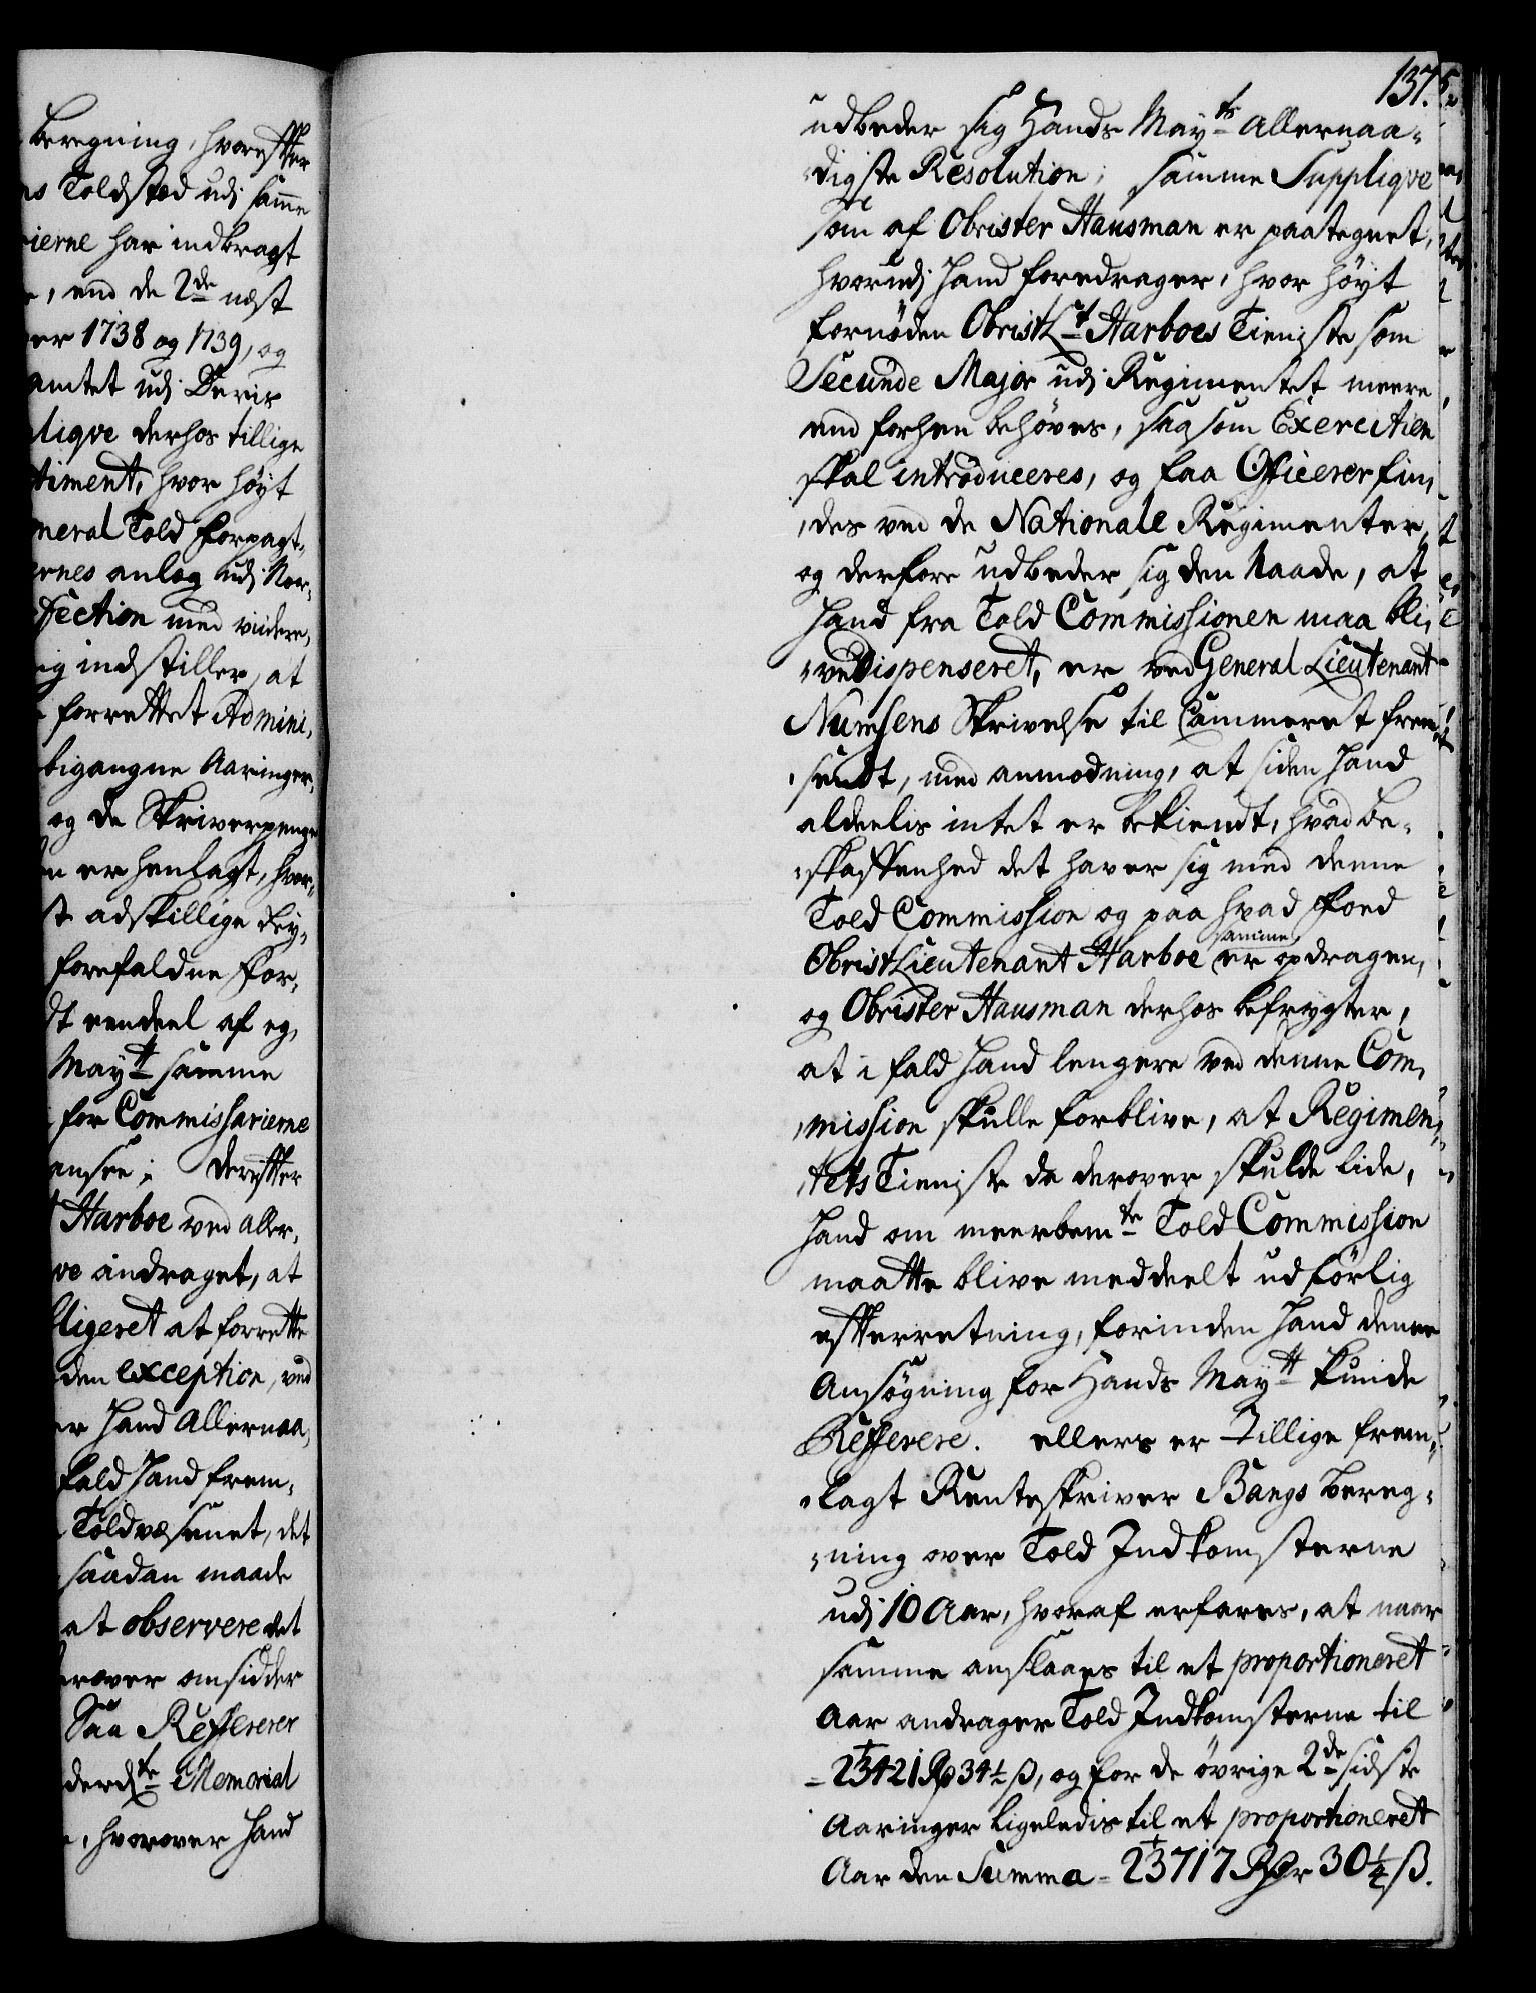 beregning, hvorefter
ns Toldsted udj samme
rierne har indbragt
e, end de 2de næst
er 1738 og 1739, og
amtet udj Deris
lique derhos tillige
timent, hvor høyt
neral Told Forpagt-
ernes anlæg udj Nor-
fection med videre,
ig indstiller, at
forrettet Admini-
bigangne Aaringer,
og de Skriverpenge
n er henlagt, hvor-
t adskillige Bey-
forefaldne For-
dt eendeel af eg-
Mayt samme
for Commissarierne
ansee; Derefter
Harboe ved aller-
ve andraget, at
bligeret at forrette
den exception, ved
er hand Allernaa-
fald hand frem-
Toldvæsenet, det
saadan maade
at observere det
erover ansidder
Saa Refererer
derdte Memorial
e, hvorover hand
137.
udbeder sig Hands Mayts Allernaa-
digste Resolution; samme Supplique
som af Obrister Hausman er paategnet,
hvorudj hand foredrager, hvor høyt
fornøden ObristLt Harboes Tieniste som
Secunde Major udj Regimentet meere
end forhen behøves, saasom Exercitien
skal introduceres, og faa Officerer fin-
des ved de Nationale Regimenter,
og derfore udbeder sig den Naade, at
hand fra Told Commissionen maa bli-
ve Dispenseret, er ved General Lieutenant
Numsens Skrivelse til Cammeret frem-
sendt, med anmodning, at siden hand
aldeelis intet er bekiendt, hvad be-
skaffenhed det haver sig med denne
Told Commission og paa hvad Foed
ObristLieutenant Harboe samme er opdragen,
og Obrister Hausman derhos befrygter,
at i fald hand lengere ved denne Com-
mission skulle forblive, at Regimen-
tets Tieniste da derover skulde lide,
hand om meerbemte Told Commission
maatte blive meddeelt udførlig
efterretning, forinden hand denne
Ansøgning for Hands Mayt kunde
Referere. ellers er Tillige frem-
lagt Renteskriver Bangs bereg-
ning over Told Indkomsterne
udj 10 Aar, hvoraf erfares, at naar
samme anslaaes til et proportioneret
Aar andrager Told Indkomsterne til
= 23421 Rd 34½ ß, og for de øvrige 2de sidste
Aaringer ligeledis til et proportioneret
Aar den Summa = 23717 Rdr 30¼ ß.